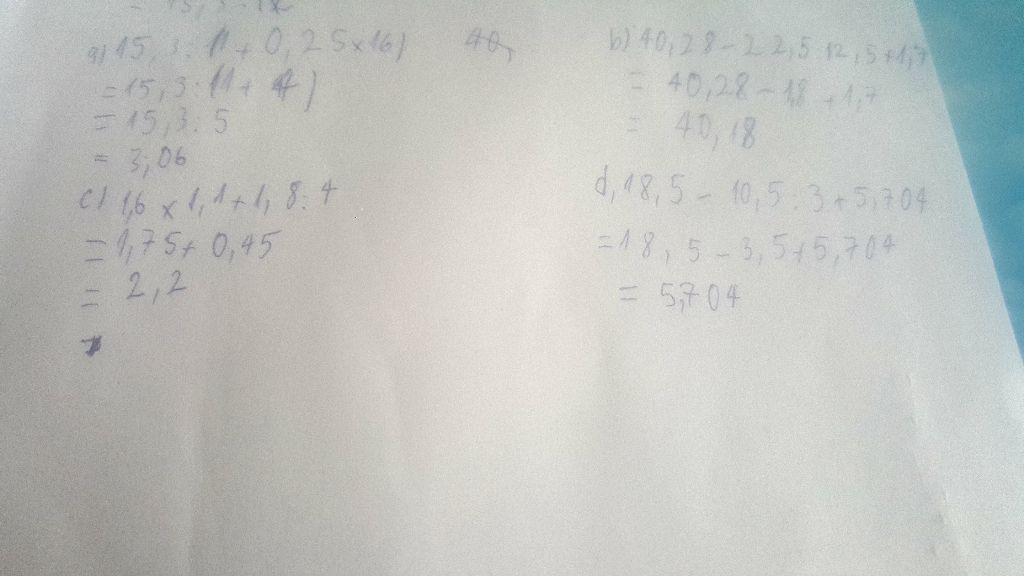 a) 15,3 : (1 + 0,25 x 16)
= 15,3 : (1 + 4)
= 15,3 : 5
= 3,06
c) 1,6 x 1,1 + 1,8 : 4
= 1,75 + 0,45
= 2,2
40,
b) 40,28 - 22,5 : 12,5 + 1,7
= 40,28 - 1,8 + 1,7
= 40,18
d, 18,5 - 10,5 : 3 + 5,704
= 18,5 - 3,5 + 5,704
= 5,704